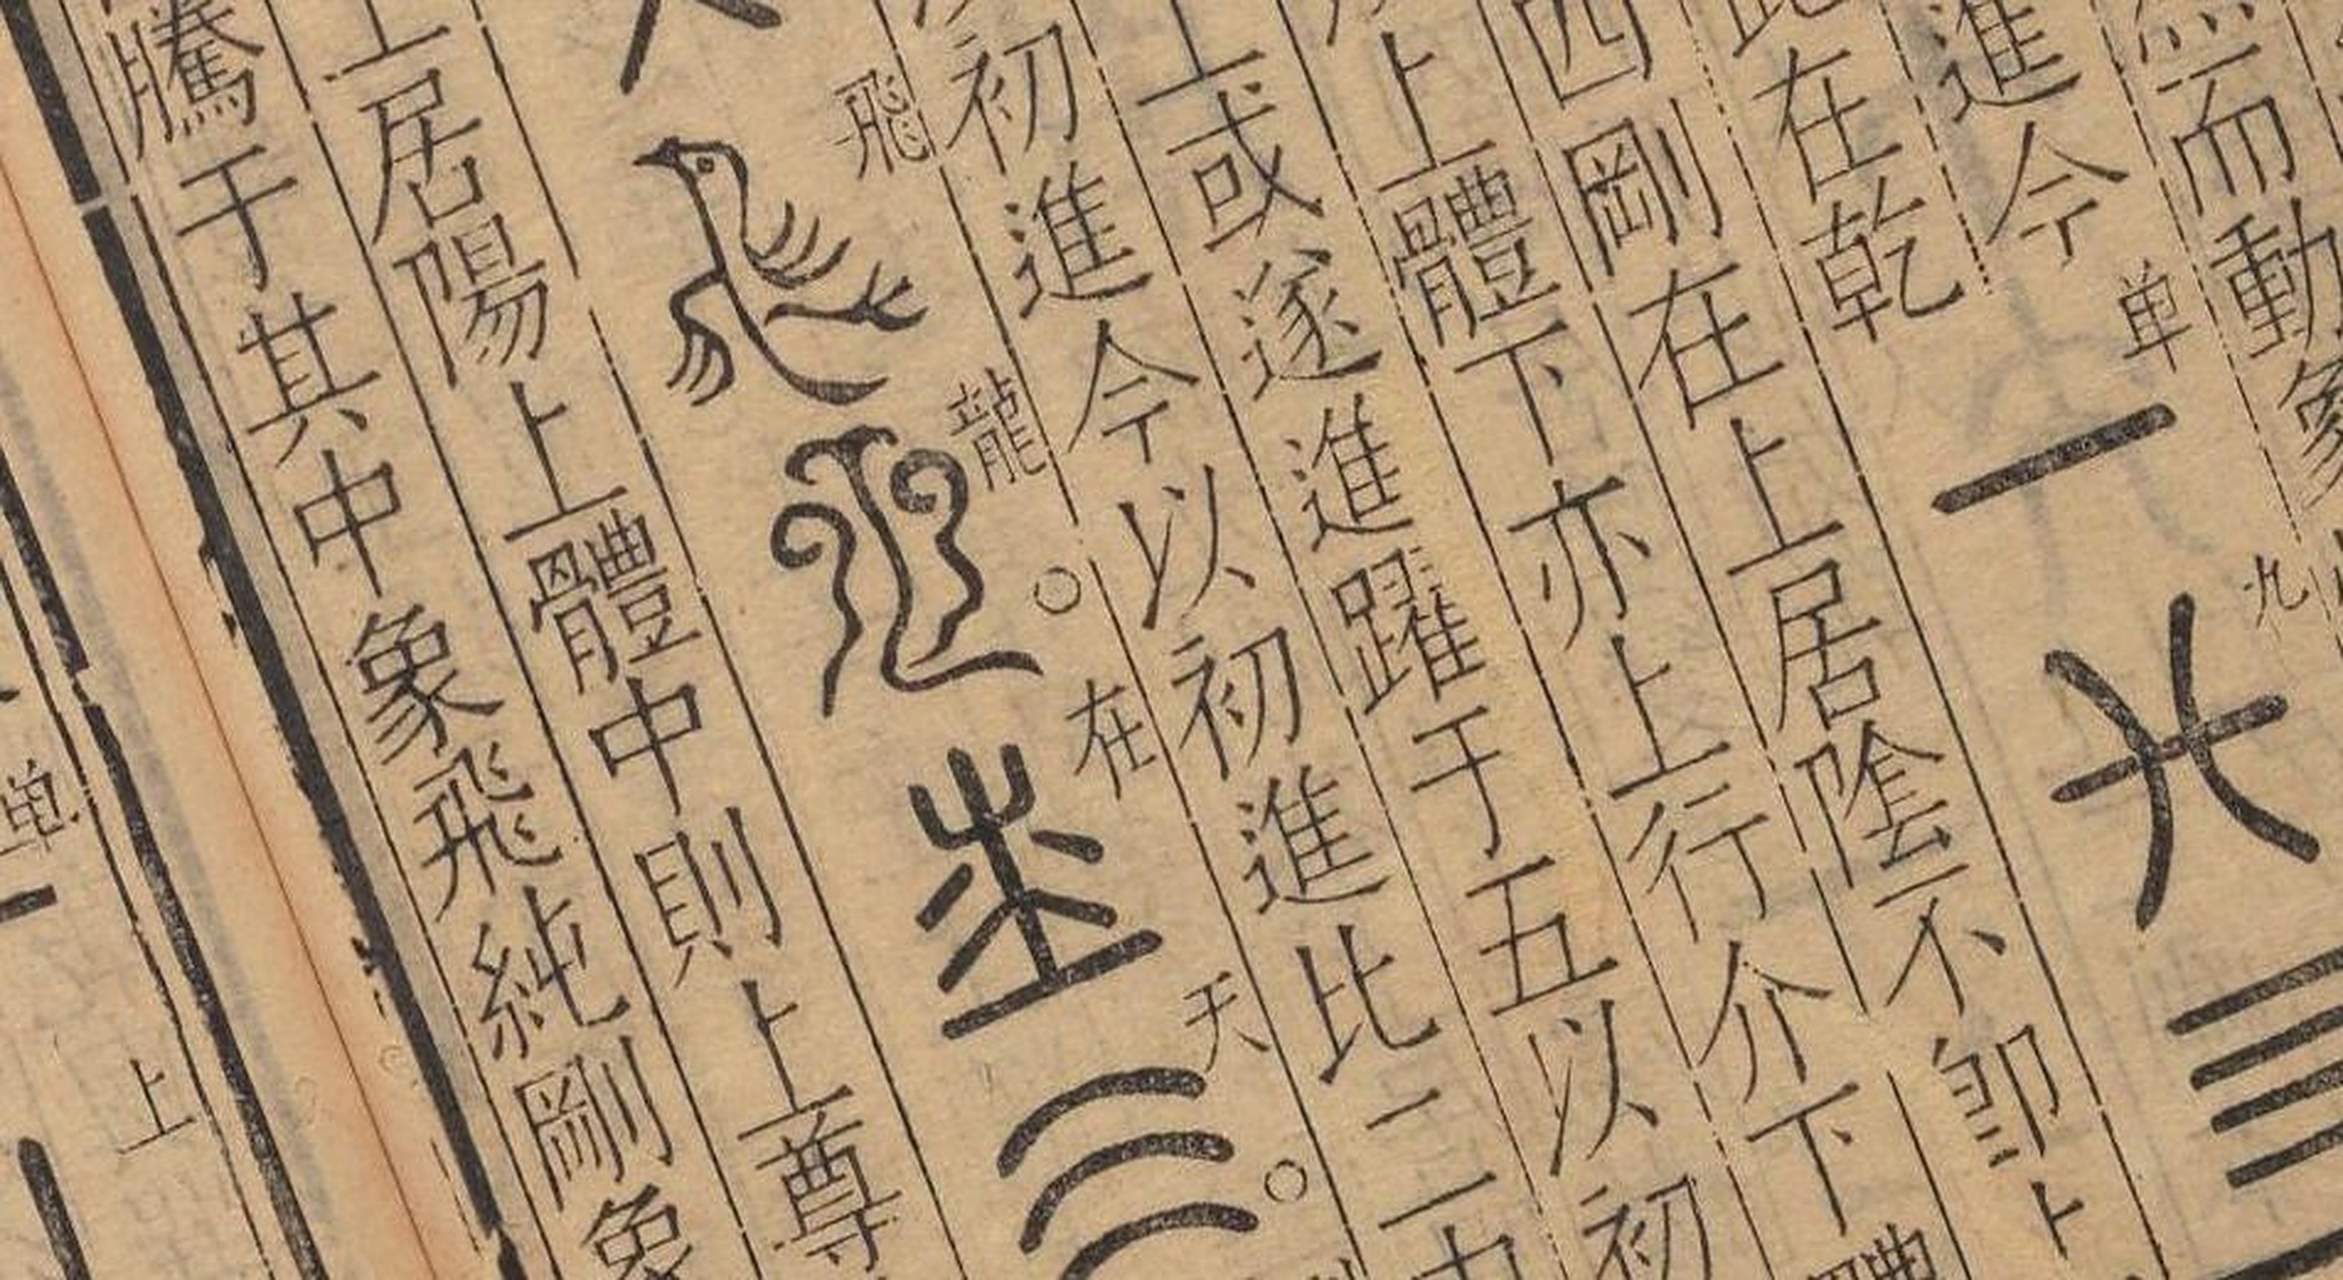 無而動象
進今
单
九
此在乾
四剛在上居陰不即上
上體下亦上行介下體
上或遂進躍于五以初
初進今以初進比二
飛
龍
在
天
上居陽上體中則上尊
騰于其中象飛純剛象
单
上